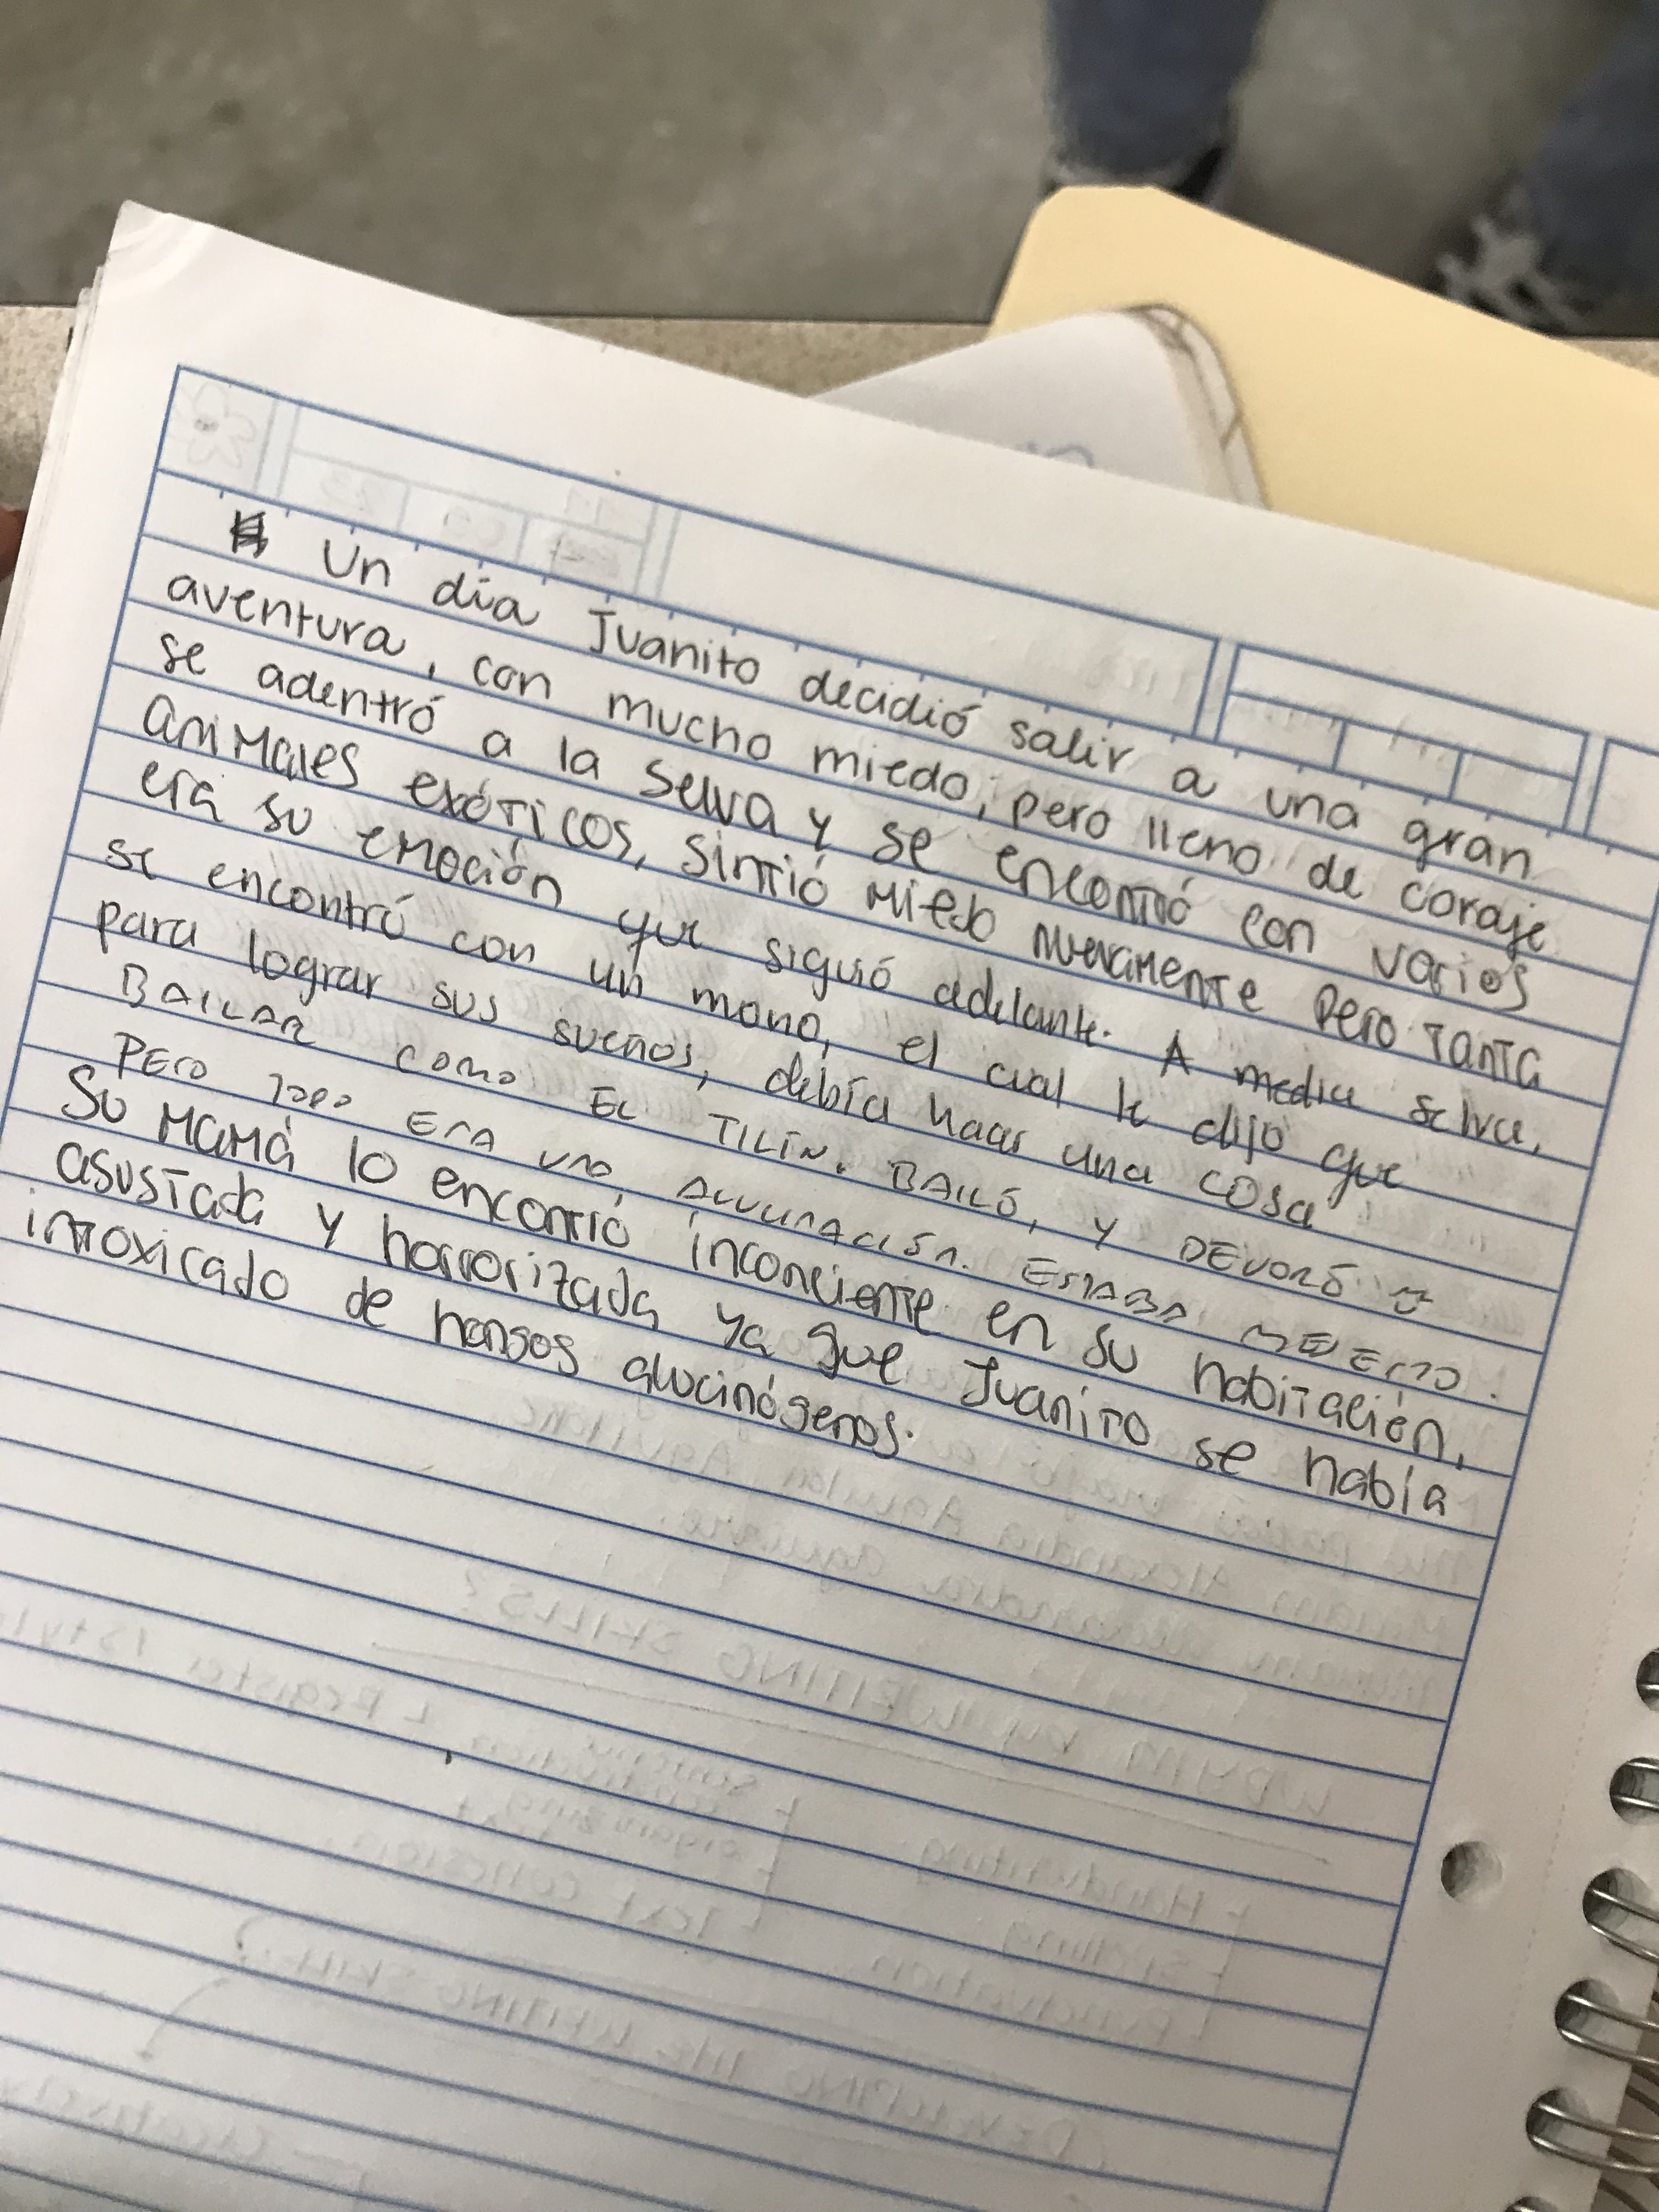 Un día Juanito decidió salir a una gran
aventura, con mucho miedo, pero lleno de coraje
se adentró a la selva y se encontró con varios
animales exóticos, sintió miedo nuevamente pero tanta
era su emoción que siguió adelante. A media selva,
se encontró con un mono, el cual le dijo que
para lograr sus sueños, debía hacer una cosa
BAILAR COMO EL TILÍN. BAILÓ, Y DEVORÓ
PERO TODO ERA UNA ALUCINACIÓN. ESTABA
Su mamá lo encontró inconciente en su habitación,
asustada y horrorizada ya que Juanito se había
intoxicado de hongos alucinógenos.